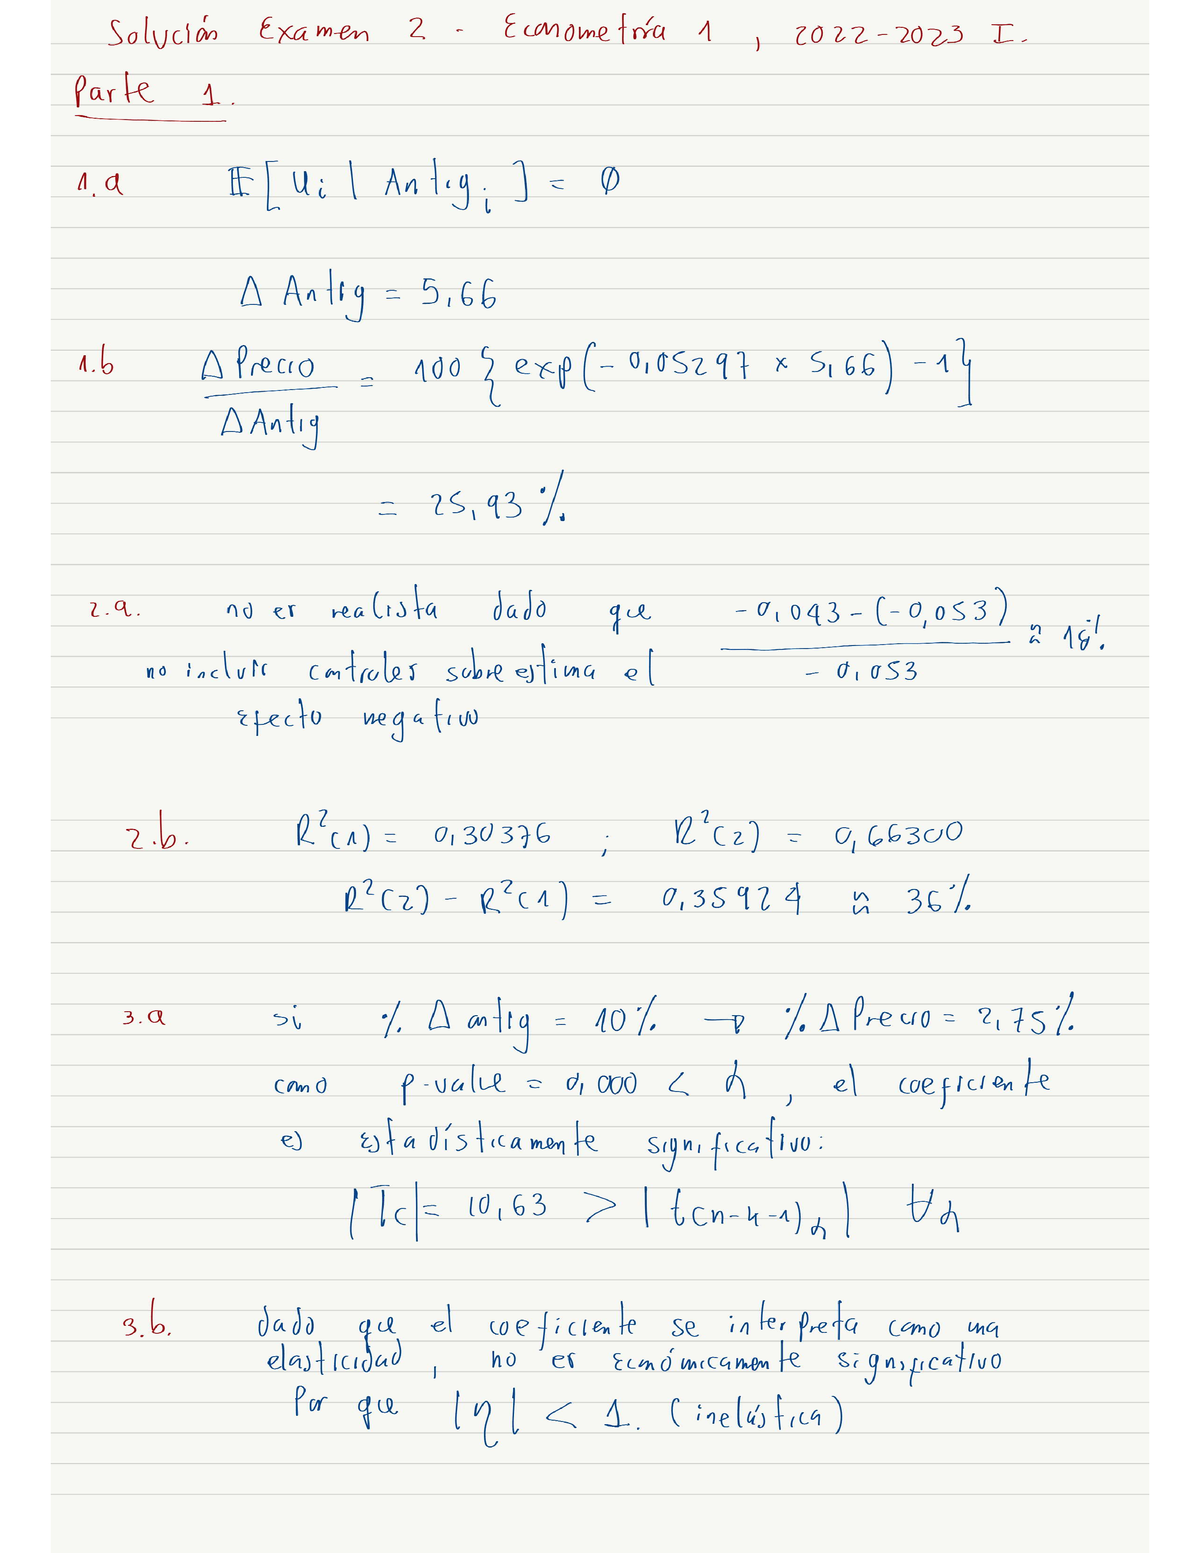 Solución Examen 2 - Econometría 1, 2022-2023 I.
Parte 1.
1.a E[Ui | Antigi] = ∅
Δ Antig = 5,66
1.b Δ Precio / Δ Antig = 100 { exp(-0,05297 x 5,66) - 1}
= 25,93 %
2.a. no es realista dado que (-0,043 - (-0,053)) / -0,053 ≈ 18%
no incluir controles sobre estima el
efecto negativo
2.b. R²(1) = 0,30376 ; R²(2) = 0,66300
R²(2) - R²(1) = 0,35924 ≈ 36%
3.a si % Δ antig = 10% → % Δ Precio = 2,75%
como p-value = 0,000 < α, el coeficiente
es estadísticamente significativo:
|Tc| = 10,63 > | t(n-k-1)α | ∀α
3.b. dado que el coeficiente se interpreta como una
elasticidad, no es económicamente significativo
Por que |η| < 1. (inelástica)